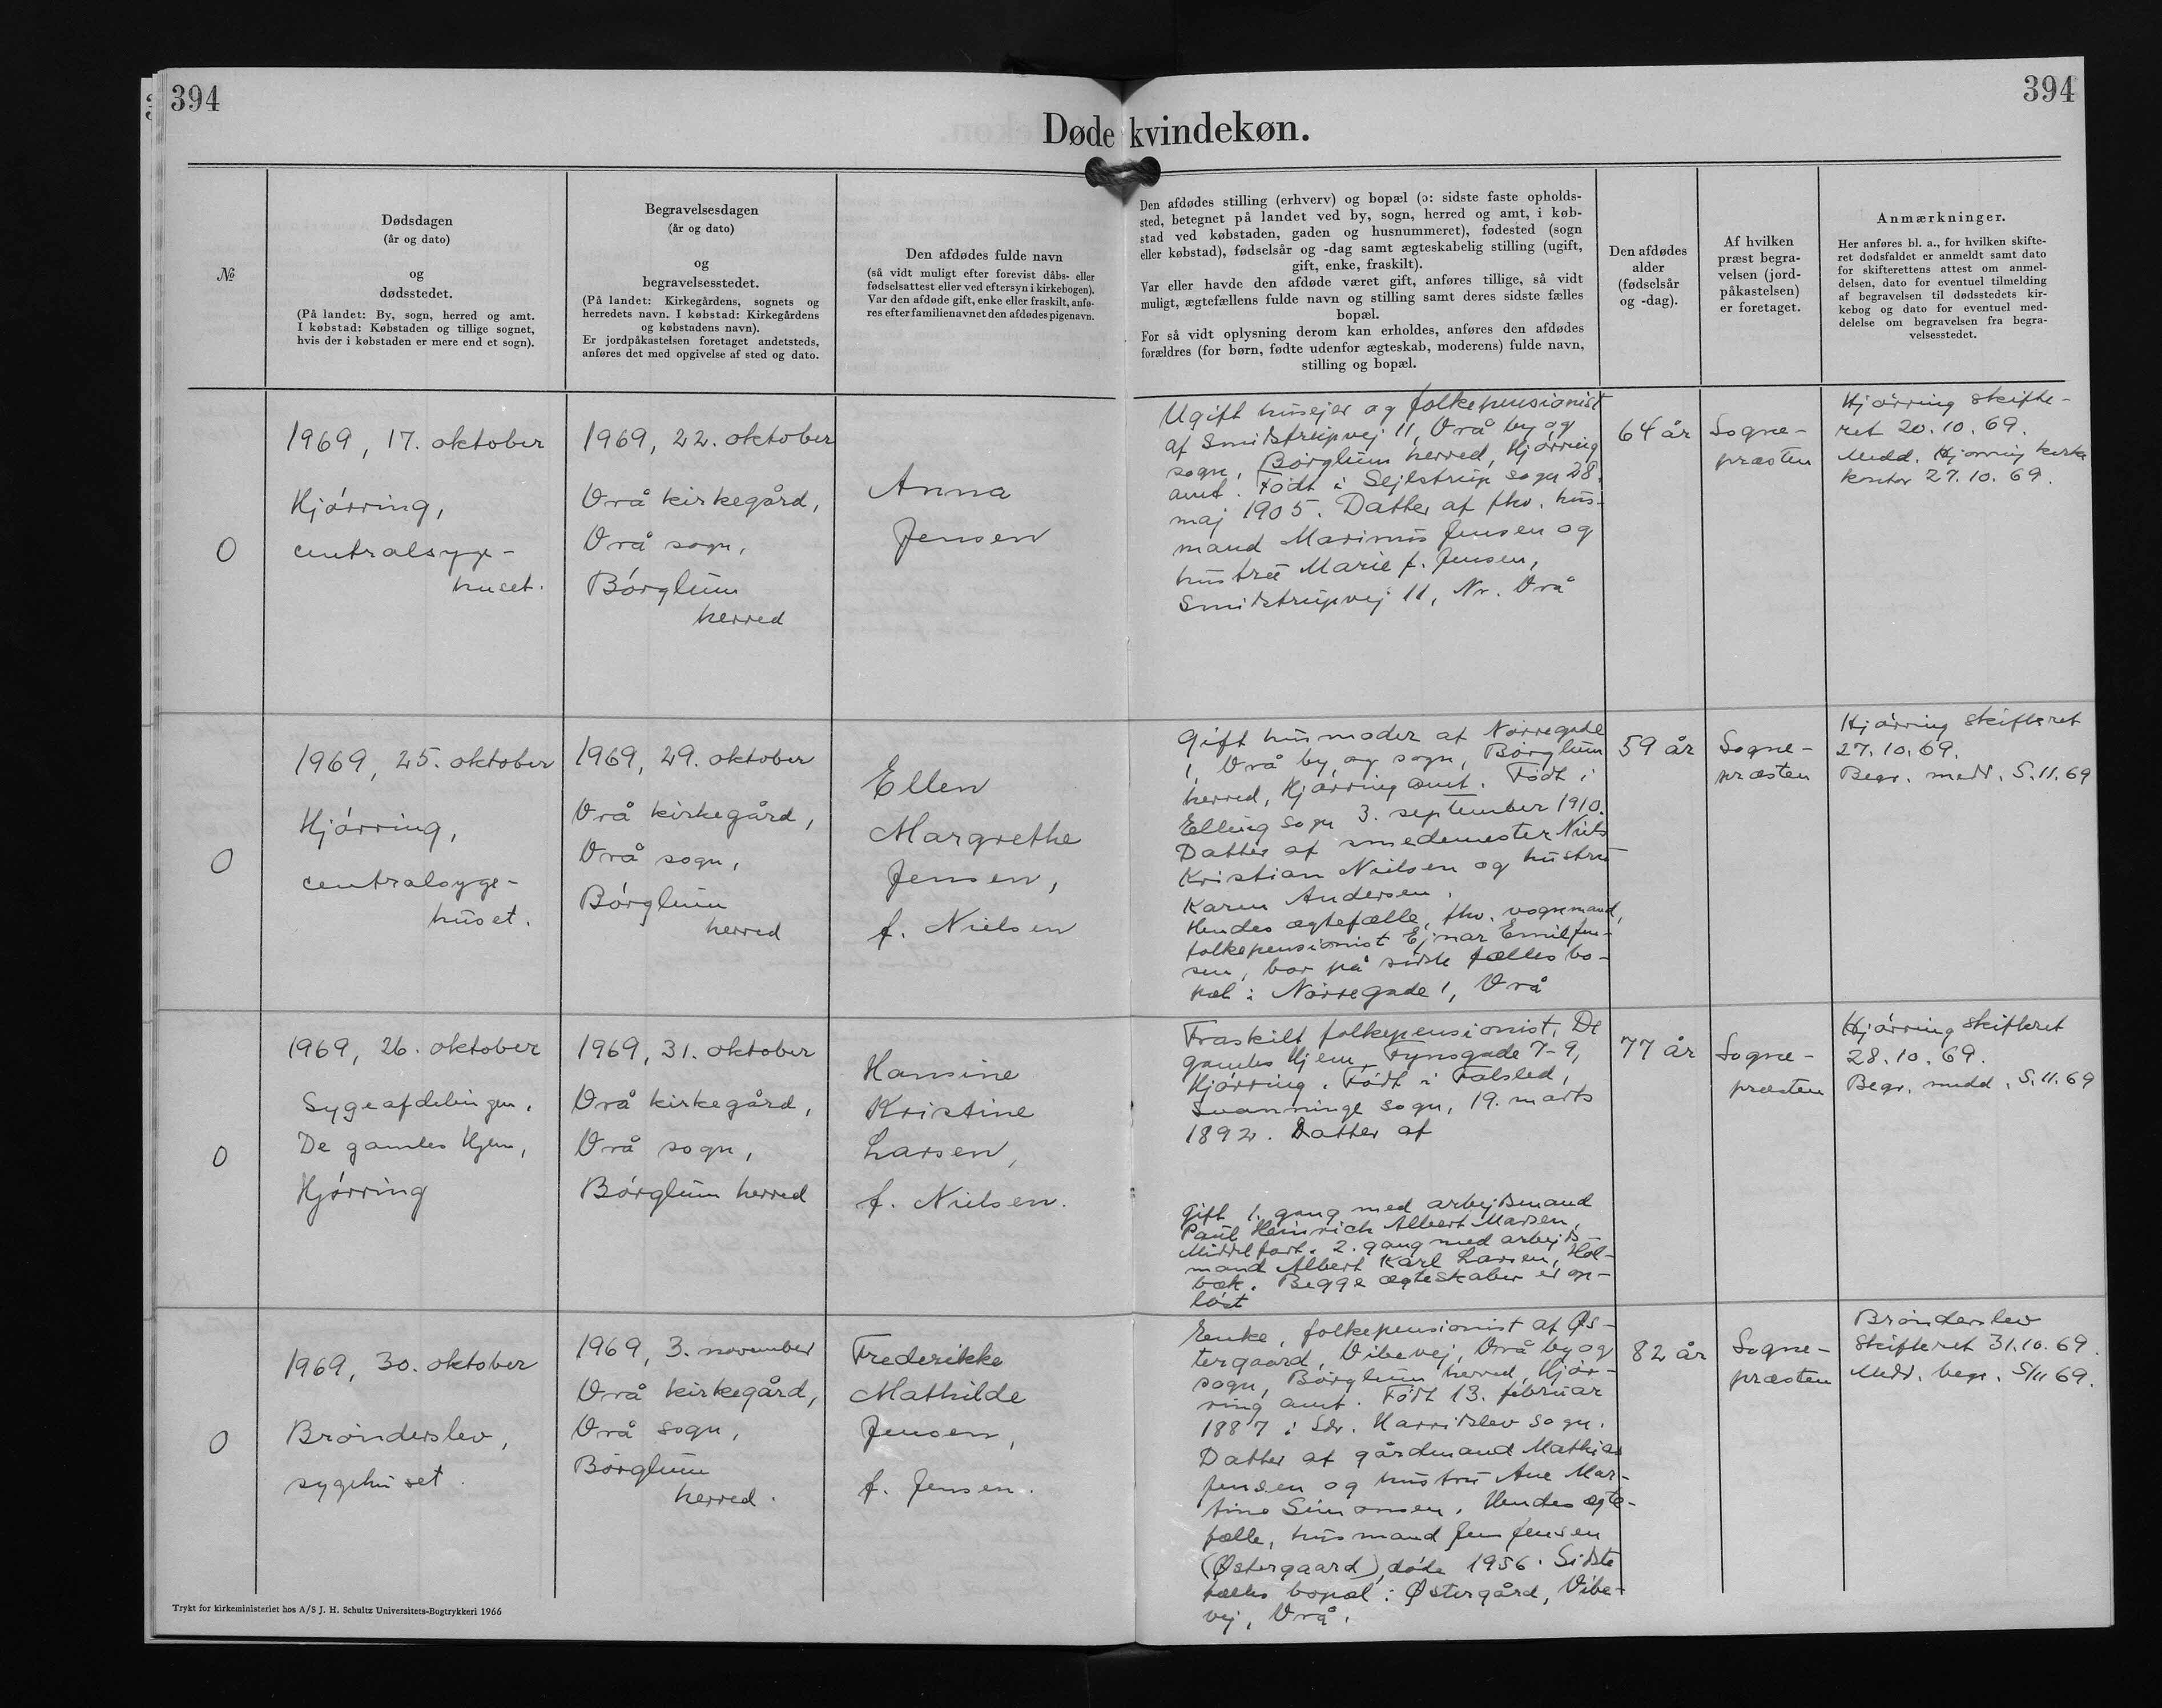 394
394
Døde kvindekøn.
№
Dødsdagen
(år og dato)
og
dødsstedet.
(På landet: By, sogn, herred og amt.
I købstad: Købstaden og tillige sognet,
hvis der i købstaden er mere end et sogn).
Begravelsesdagen
(år og dato)
og
begravelsesstedet.
(På landet: Kirkegårdens, sognets og
herredets navn. I købstad: Kirkegårdens
og købstadens navn).
Er jordpåkastelsen foretaget andetsteds,
anføres det med opgivelse af sted og dato.
Den afdødes fulde navn
(så vidt muligt efter forevist dåbs- eller
fødselsattest eller ved eftersyn i kirkebogen).
Var den afdøde gift, enke eller fraskilt, anfø-
res efter familienavnet den afdødes pigenavn.
Den afdødes stilling (erhverv) og bopæl (ɔ: sidste faste opholds-
sted, betegnet på landet ved by, sogn, herred og amt, i køb-
stad ved købstaden, gaden og husnummeret), fødested (sogn
eller købstad), fødselsår og -dag samt ægteskabelig stilling (ugift,
gift, enke, fraskilt).
Var eller havde den afdøde været gift, anføres tillige, så vidt
muligt, ægtefællens fulde navn og stilling samt deres sidste fælles
bopæl.
For så vidt oplysning derom kan erholdes, anføres den afdødes
forældres (for børn, fødte udenfor ægteskab, moderens) fulde navn,
stilling og bopæl.
Den afdødes
alder
(fødselsår
og -dag).
Af hvilken
præst begra-
velsen (jord-
påkastelsen)
er foretaget.
Anmærkninger.
Her anføres bl. a., for hvilken skifte-
ret dødsfaldet er anmeldt samt dato
for skifterettens attest om anmel-
delsen, dato for eventuel tilmelding
af begravelsen til dødsstedets kir-
kebog og dato for eventuel med-
delelse om begravelsen fra begra-
velsesstedet.
0
1969, 17. oktober
Hjørring,
centralsyge-
huset.
1969, 22. oktober
Vrå kirkegård,
Vrå sogn,
Børglum
herred
Anna
Jensen
Ugift husejer og folkepensionist
af Smidstrupvej 11, Vrå by og
sogn, Børglum herred, Hjørring
amt. Født i Sejlstrup sogn 28.
maj 1905. Datter af fhv. hus-
mand Marinus Jensen og
hustru Marie f. Jensen,
Smidstrupvej 11, Nr. Vrå
64 år
Sogne-
præsten
Hjørring skifte-
ret 20.10.69.
Medd. Hjørring kirke
kontor 27.10.69.
0
1969, 25. oktober
Hjørring,
centralsyge-
huset.
1969, 29. oktober
Vrå kirkegård,
Vrå sogn,
Børglum
herred
Ellen
Margrethe
Jensen,
f. Nielsen
Gift husmoder af Nørregade
1, Vrå by og sogn, Børglum
herred, Hjørring amt. Født i
Elling sogn 3. september 1910.
Datter af smedemester Niels
Kristian Nielsen og hustru
Karen Andersen.
Hendes ægtefælle, fhv. vognmand,
folkepensionist Ejnar Emil Jen-
sen, bor på sidste fælles bo-
pæl: Nørregade 1, Vrå
59 år
Sogne-
præsten
Hjørring skifteret
27.10.69.
Begr. medd. 5.11.69
0
1969, 26. oktober
Sygeafdelingen,
De gamles Hjem,
Hjørring
1969, 31. oktober
Vrå kirkegård,
Vrå sogn,
Børglum herred
Hansine
Kristine
Larsen,
f. Nielsen.
Fraskilt folkepensionist, De
gamles Hjem, Fynsgade 7-9,
Hjørring. Født i Falsled,
Svanninge sogn, 19. marts
1892. Datter af
Gift 1. gang med arbejdsmand
Paul Heinrich Albert Madsen,
Middelfart. 2. gang med arbejds-
mand Albert Karl Larsen, Hol-
bæk. Begge ægteskaber er op-
løst
77 år
Sogne-
præsten
Hjørring skifteret
28.10.69.
Begr. medd. 5.11.69
0
1969, 30. oktober
Brønderslev,
sygehuset.
1969, 3. november
Vrå kirkegård,
Vrå sogn,
Børglum
herred.
Frederikke
Mathilde
Jensen,
f. Jensen.
Enke, folkepensionist af Øs-
tergaard, Vibevej, Vrå by og
sogn, Børglum herred, Hjør-
ring amt. Født 13. februar
1887 i Sdr. Harridslev sogn.
Datter af gårdmand Mathias
Jensen og hustru Ane Mar-
tine Simonsen. Hendes ægte-
fælle, husmand Jens Jensen
(Østergaard), døde 1956. Sidste
fælles bopæl: Østergård, Vibe-
vej, Vrå.
82 år
Sogne-
præsten
Brønderslev
Skifteret 31.10.69.
Medd. begr. 5/11 69.
Trykt for kirkeministeriet hos A/S J. H. Schultz Universitets-Bogtrykkeri 1966